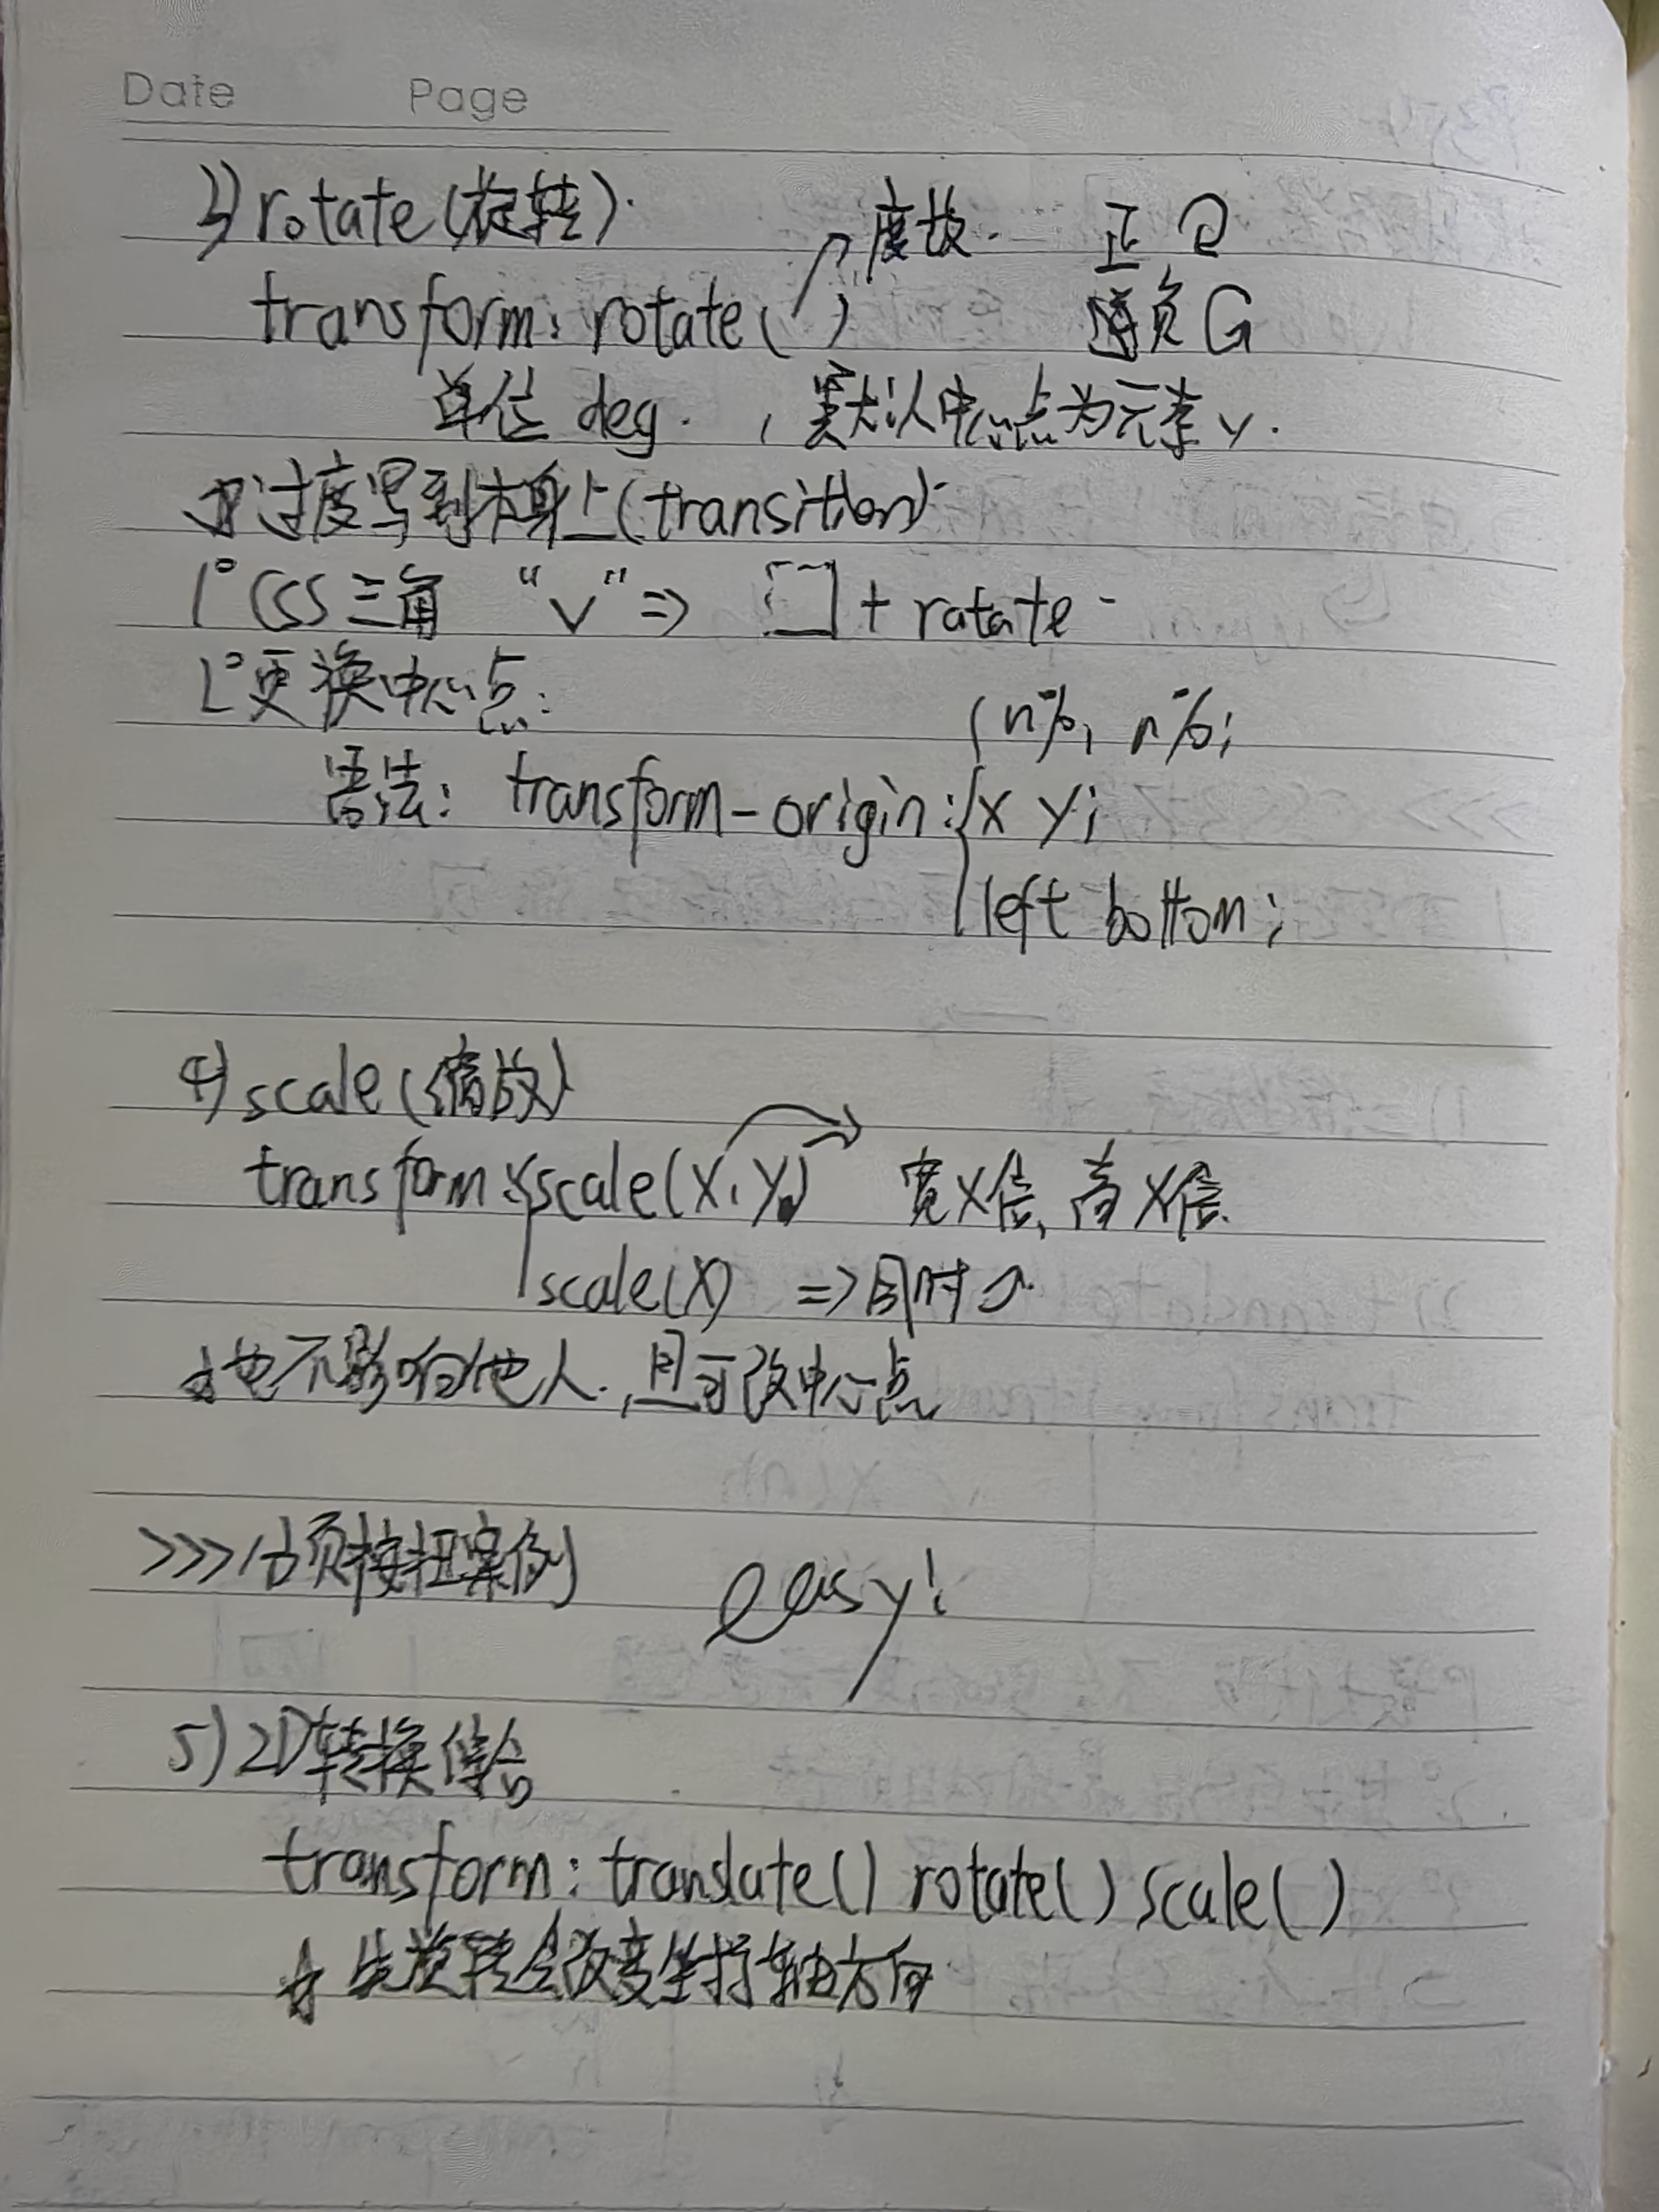 Date Page
3) rotate(旋转).
度数. 正
transform: rotate( ) 负
单位 deg. , 默认中心点为元素
过度写到本身上(transition)
1° CSS三角 "∨" => + ratate
2° 更换中心点:
n%, n%;
语法: transform-origin: x y;
left bottom;
4) scale(缩放)
transform: scale(X, Y) 宽X倍, 高X倍.
scale(X) => 同时
也不影响他人, 且可改中心点
>>>分页按扭案例 easy!
5) 2D转换综合
transform: translate() rotate() scale()
先旋转会改变坐标轴方向